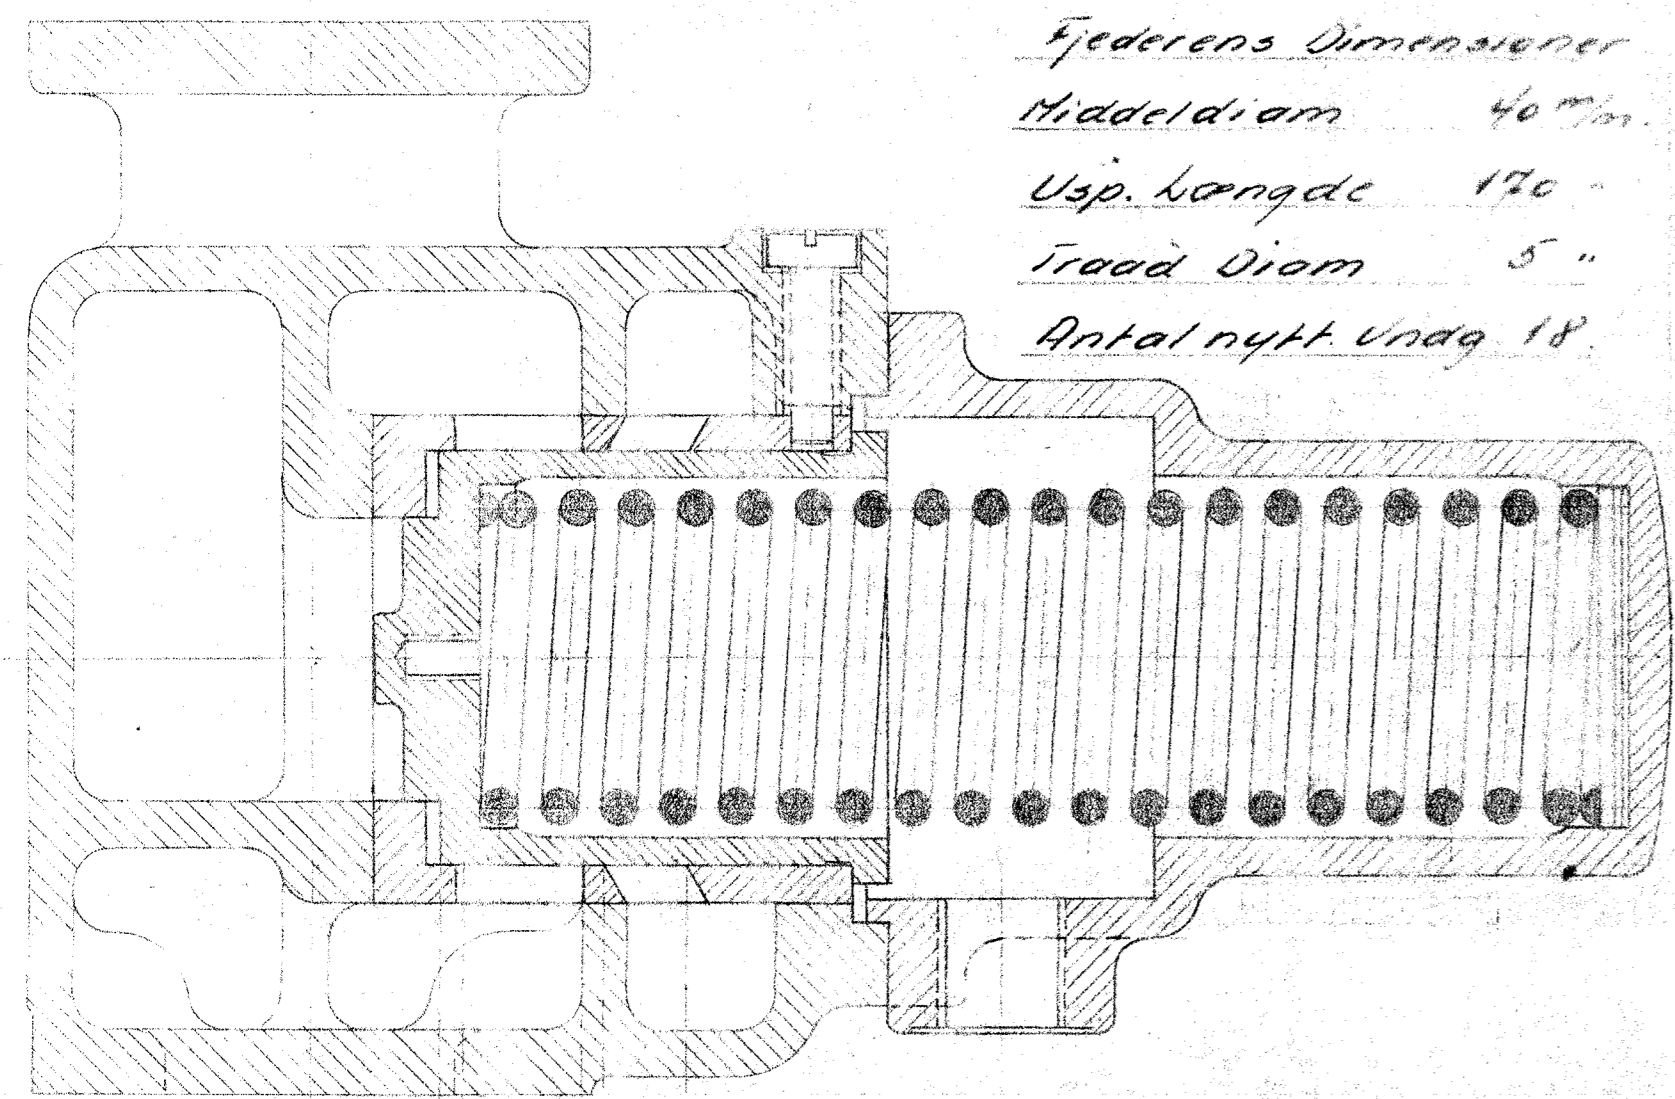 Fjederens Dimensioner
Middeldiam 40 m/m.
Usp. Længde 170 "
Traad Diam 5 "
Antal nytt. Vndg 18.